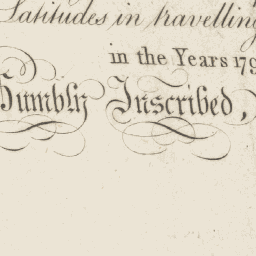 Latitudes in travelling
in the Years 179
Humbly Inscribed,